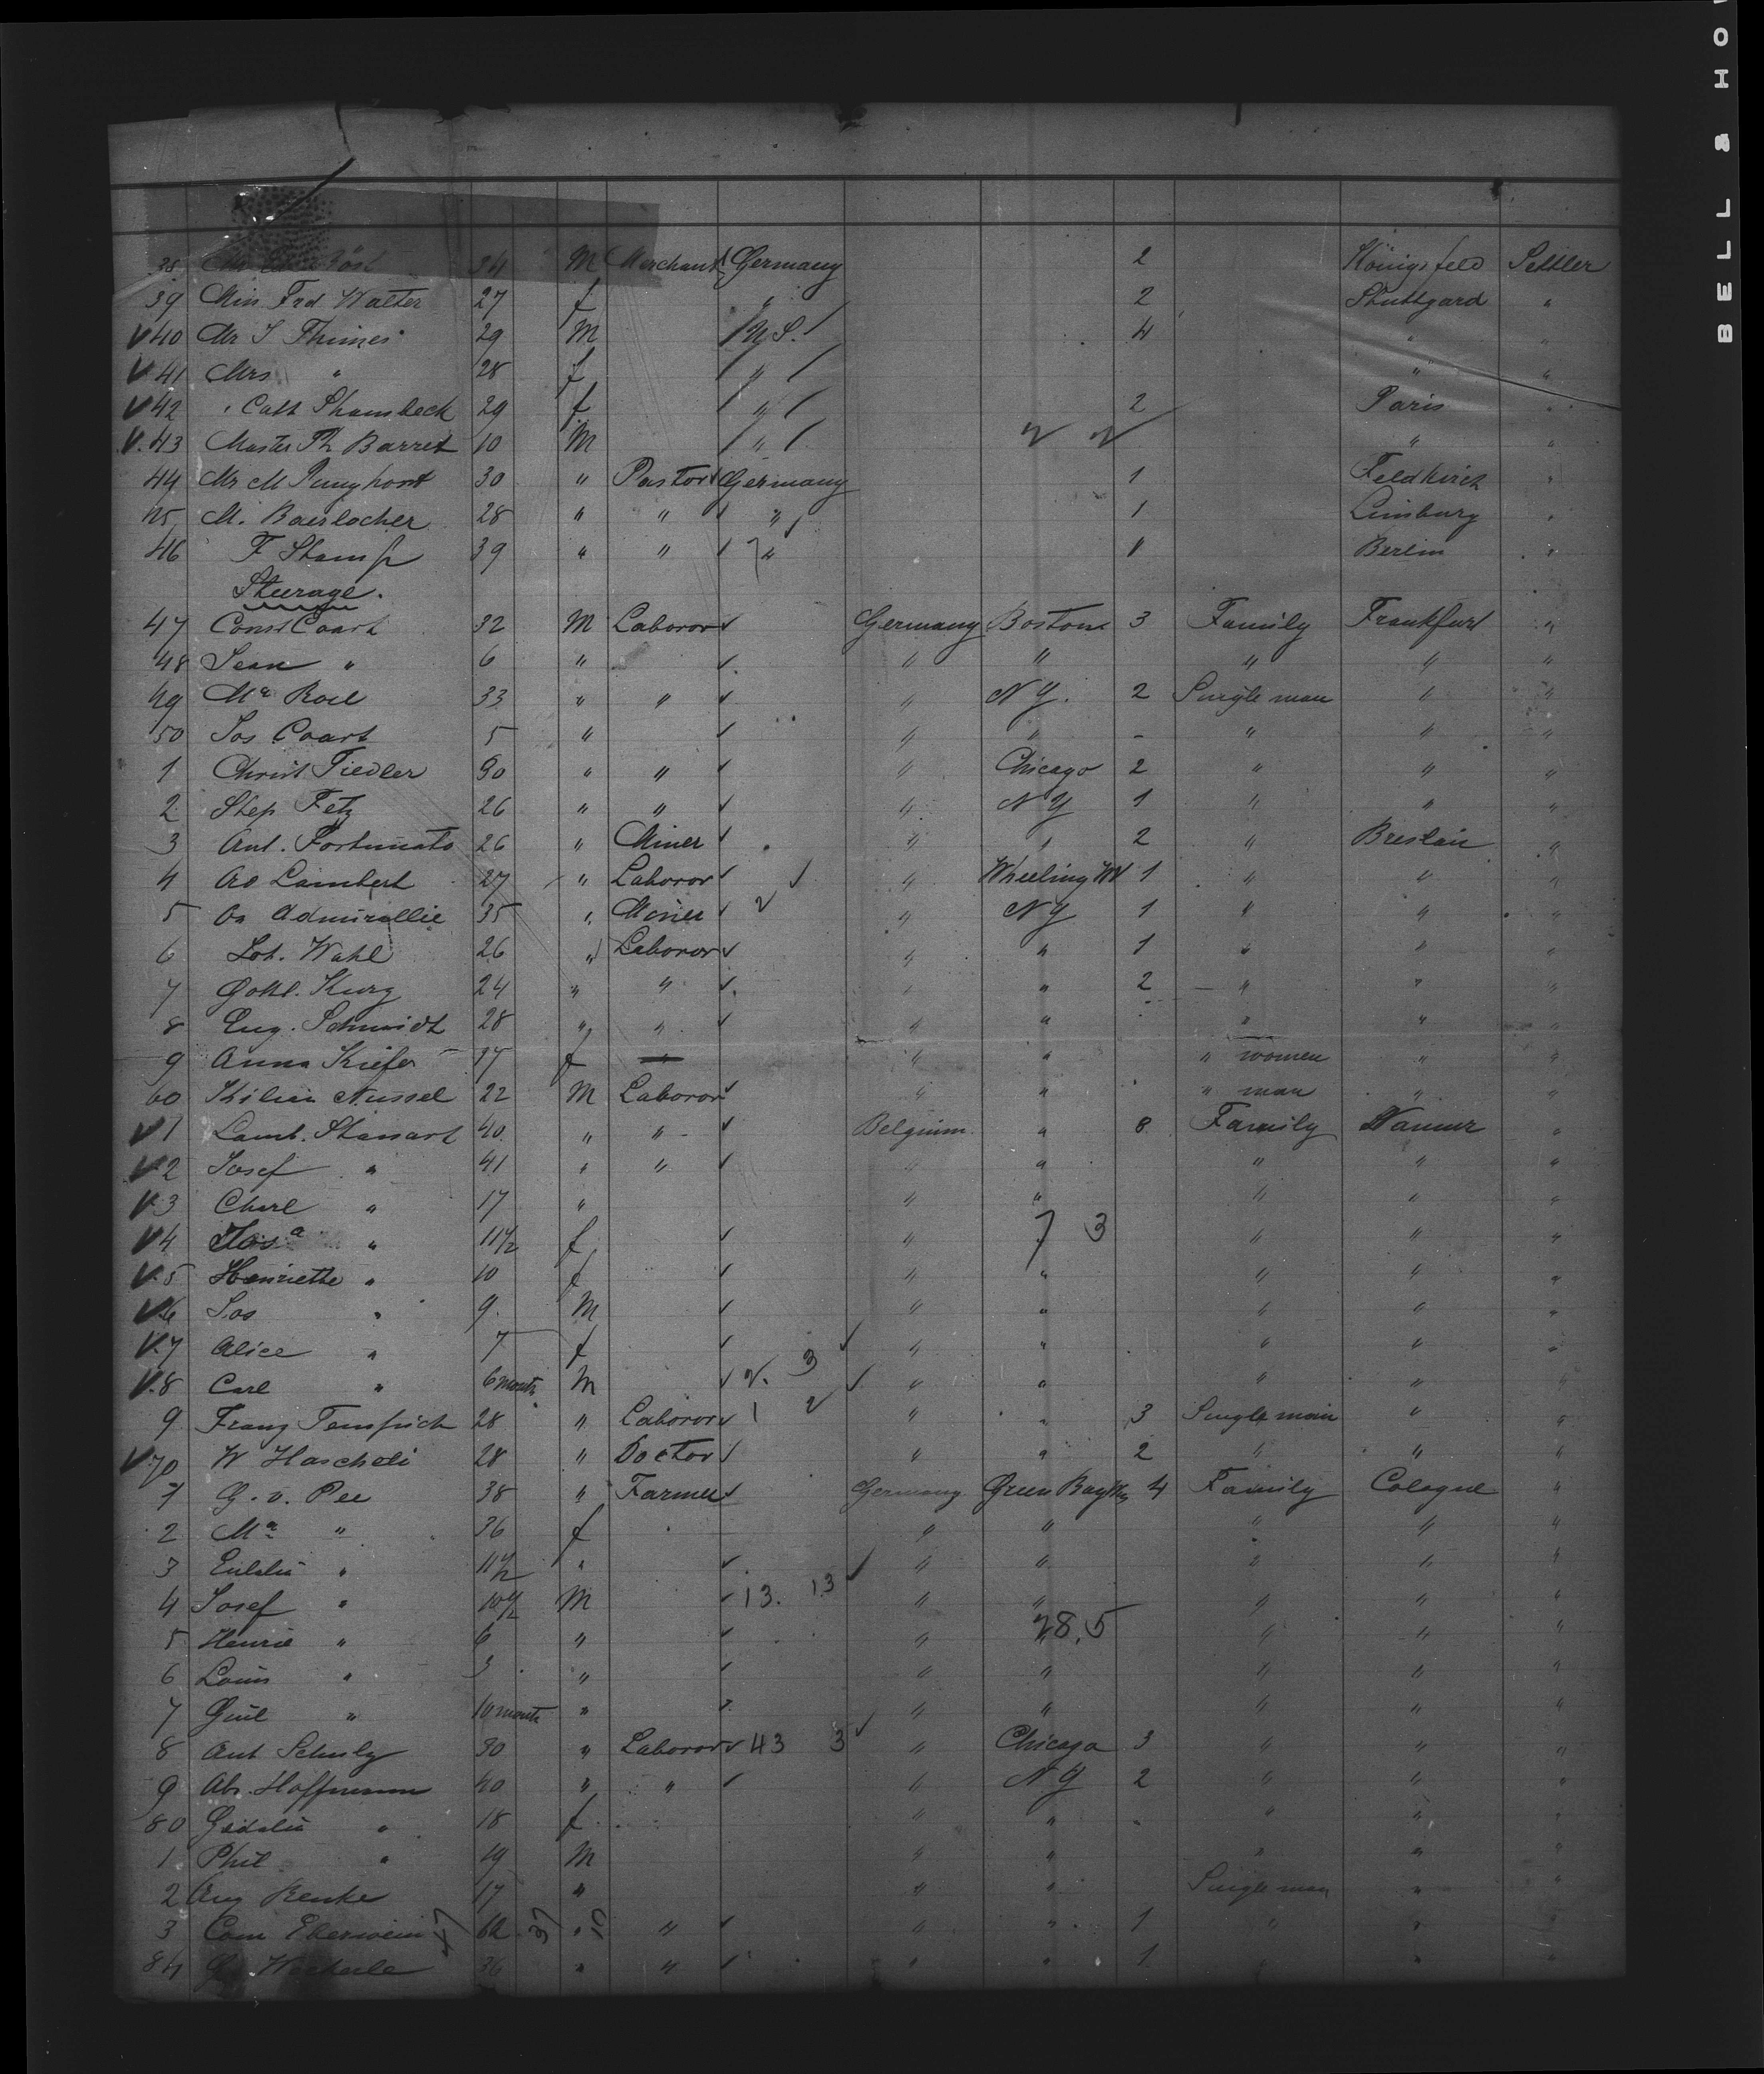 BELL & HO
38 Mr M Merchant Germany 2 Königsfeld Settler
39 Miss Frd Walter 27 f " 2 Stuttgard "
V 40 Mr J Thimes 29 M U.S. 4 " "
V 41 Mrs " 28 f " " "
V 42 " Cath Shambeck 29 f " 2 Paris "
V 43 Master Th Barret 10 M " " "
44 Mr M Junghorst 30 " Pastor Germany 1 Feldkirch "
45 M. Baerlocher 28 " " " 1 Limburg "
46 F Stamp 39 " " " 1 Berlin "
Steerage.
47 Const Coart 32 M Laboror Germany Boston 3 Family Frankfurt "
48 Jean " 6 " " " " " "
49 Ma Roel 33 " " " N Y. 2 Single man " "
50 Jos Coart 5 " " " - " " "
1 Christ Fiedler 30 " " " Chicago 2 " " "
2 Step Fetz 26 " " " N Y 1 " " "
3 Ant. Fortunato 26 " Miner " " 2 " Breslau "
4 Ao Lambert 27 " Laboror " Wheeling WV 1 " " "
5 Admirallie 35 " Miner " N Y 1 " " "
6 Lot. Wahl 26 " Laboror " " 1 " " "
7 Gottl. Kurz 24 " " " " 2 " " "
8 Eug. Schmidt 28 " " " " " " "
9 Anna Kiefer 17 f " " " women " "
60 Kilian Nussel 22 M Laboror " " " man " "
V 1 Lamb. Stassart 40 " " Belgium " 8 Family Namur "
V 2 Josef " 41 " " " " " " "
V 3 Charl " 17 " " " " " "
V 4 Josa " 11 1/2 f " 7 3 " " "
V 5 Henriette " 10 f " " " " "
V 6 Jos " 9 M " " " " "
V 7 Alice " 7 f " " " " "
V 8 Carl " 6 month M " " " " "
9 Franz Tempich 28 " Laboror " " 3 Single man " "
V 70 W Hascheli 28 " Doctor " " 2 " " "
7 G. v. Pee 38 " Farmer Germany Green Bay 4 Family Cologne "
2 Ma " 36 f " " " " "
3 Eulalia " 11 1/2 " " " " " "
4 Josef " 10 1/2 M 13. 13 " " " " "
5 Henrie " 6 " " 28.5 " " "
6 Louis " 3 " " " " " "
7 Guil " 10 month " " " " " "
8 Ant Schulz 30 " Laboror 43 3 " Chicago 3 " " "
9 Abr. Hoffmann 40 " " " N Y 2 " " "
80 " 18 f " " " " "
1 Phil " 19 M " " " " "
2 Aug Renke 17 " " " Single man " "
3 Eberwein 62 " " " " 1 " " "
84 Weckerle 36 " " " " 1 " " "